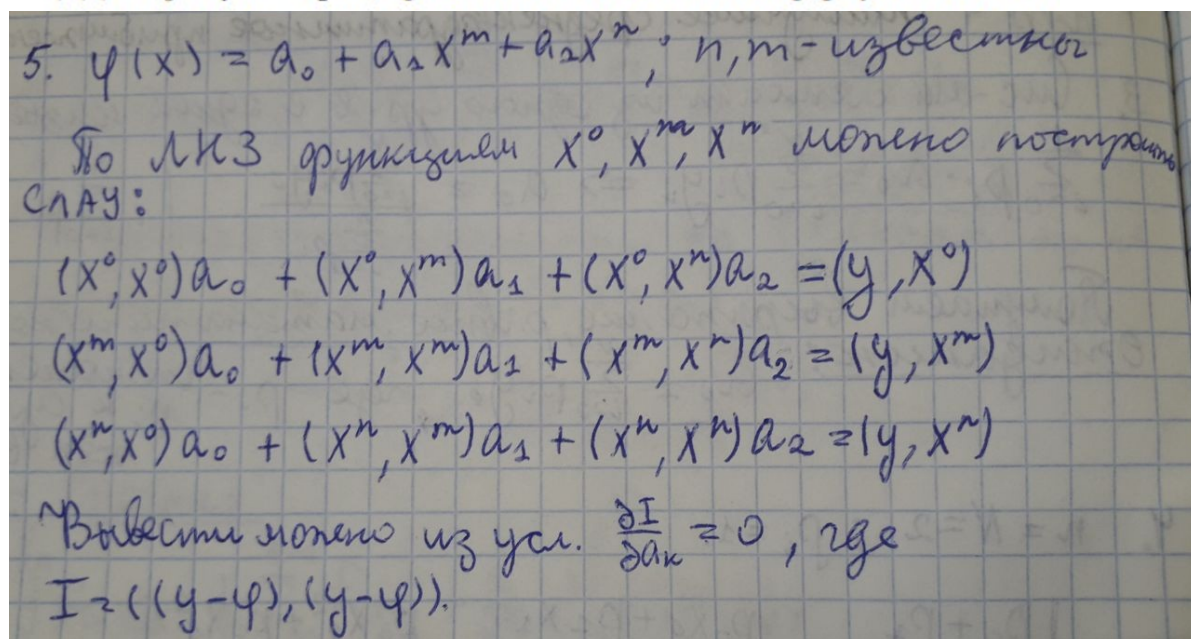 5. φ(x) = a₀ + a₁x^m + a₂x^n; n, m - известны
По ЛНЗ функциям x⁰, x^m, x^n можно построить
СЛАУ:
(x⁰, x⁰)a₀ + (x⁰, x^m)a₁ + (x⁰, x^n)a₂ = (y, x⁰)
(x^m, x⁰)a₀ + (x^m, x^m)a₁ + (x^m, x^n)a₂ = (y, x^m)
(x^n, x⁰)a₀ + (x^n, x^m)a₁ + (x^n, x^n)a₂ = (y, x^n)
Вывести можно из усл. ∂I/∂aₖ = 0, где
I = ((y-φ), (y-φ)).